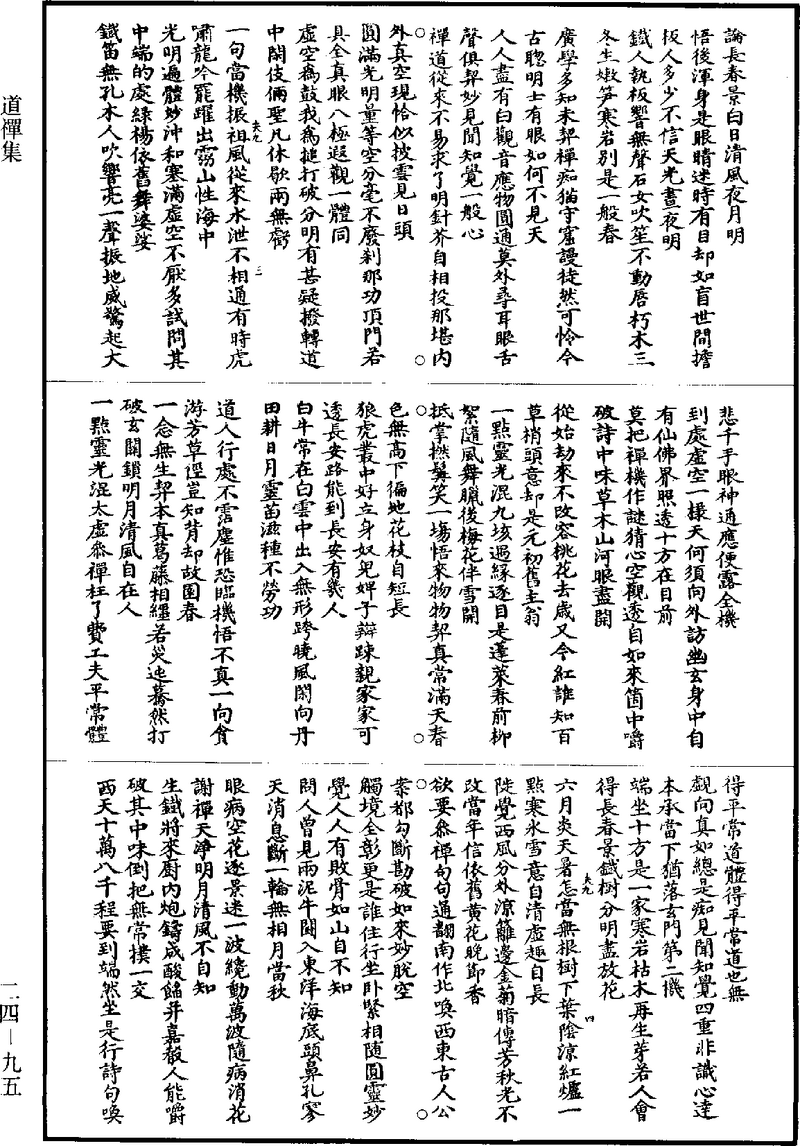 道禪集
論長春景白日清風夜月明
悟後渾身是眼睛迷時有目却如盲世間擔
板人多少不信天光晝夜明
鐵人執板響無聲石女吹笙不動唇朽木三
冬生嫩笋寒岩别是一般春
廣學多知未契禪痴猫守窟謾徒然可怜今
古聰明士有眼如何不見天
人人盡有白觀音應物圓通莫外尋耳眼舌
聲俱契妙見聞知覺一般心
禪道從來不易求了明針芥自相投那堪内
外真空現恰似披雲見日頭
圓滿光明量等空分毫不廢刹那功頂門若
具全真眼八極遐觀一體同
虛空為鼓我為搥打破分明有甚疑撥轉道
中関伎倆聖凡休歇兩無虧
一句當機振祖風從來水泄不相通有時虎
嘯龍吟罷躍出靈山性海中
光明遍體妙沖和寒滿虛空不厭多試問其
中端的處緑楊依舊舞婆娑
鐵笛無孔木人吹響亮一聲振地威驚起大
悲千手眼神通應便露全機
到處虛空一樣天何須向外訪幽玄身中自
有仙佛界照透十方在目前
莫把禪機作謎猜心空觀透自如來箇中嚼
破詩中味草木山河眼盡開
從始劫來不改容桃花去歳又今紅誰知百
草梢頭意却是元初舊主翁
一點靈光混九垓遇緣逐目是蓬萊春前柳
絮隨風舞臘後梅花伴雪開
抵掌撚鬚笑一場悟來物物契真常滿天春
色無高下徧地花枝自短長
狼虎叢中好立身奴兒婢子辯踈親家家可
透長安路能到長安有幾人
白牛常在白雲中出入無形跨曉風閑向丹
田耕日月靈苗滋種不勞功
道人行處不露塵惟恐臨機悟不真一向貪
游芳草徑豈知背却故園春
一念無生契本真葛藤相纏若災迍驀然打
破玄関鎖明月清風自在人
一點靈光混太虛叅禪枉了費工夫平常體
得平常道體得平常道也無
覷向真如總是痴見聞知覺四重非識心達
本承當下猶落玄門第二機
端坐十方是一家寒岩枯木再生芽若人會
得長春景鐵樹分明盡放花
六月炎天暑怎當無根樹下葉陰涼紅爐一
點寒氷雪意自清虛趣自長
陡覺西風分外涼籬邊金菊暗傳芳秋光不
改當年信依舊黄花晚節香
欲要叅禪句句通翻南作北喚西東古人公
案都勾斷勘破如來妙脱空
觸境全彰更是誰住行坐卧緊相隨圓靈妙
覺人人有敗骨如山自不知
問人曾見兩泥牛闘入東洋海底頭鼻孔寥
天消息斷一輪無相月當秋
眼病空花逐景迷一波纔動萬波隨病消花
謝禪天淨明月清風不自知
生鐵將來厨内炮鑄成酸餡并嘉殽人能嚼
破其中味倒把無常撲一交
西天十萬八千程要到端然坐是行詩句喚
夾九
三
夾九
四
二四－九五